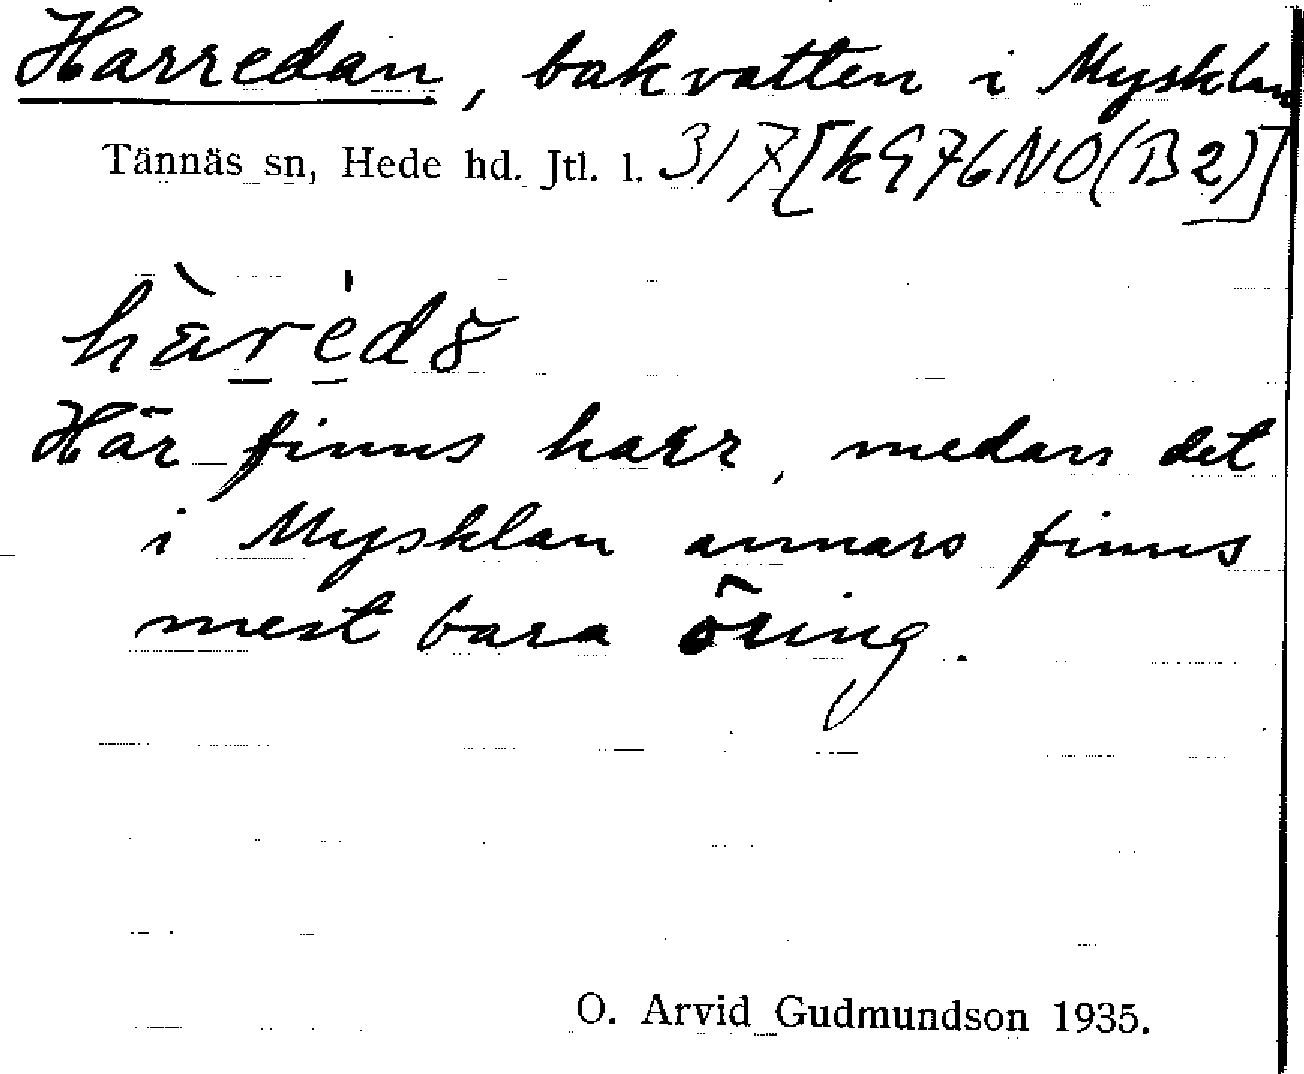 Harredan, bakvatten i Mysklan
Tännäs sn, Hede hd. Jtl. l. 317 [k976NO(B2)]
Här finns harr, medan det
i Mysklan annars finns
mest bara öring.
O. Arvid Gudmundson 1935.